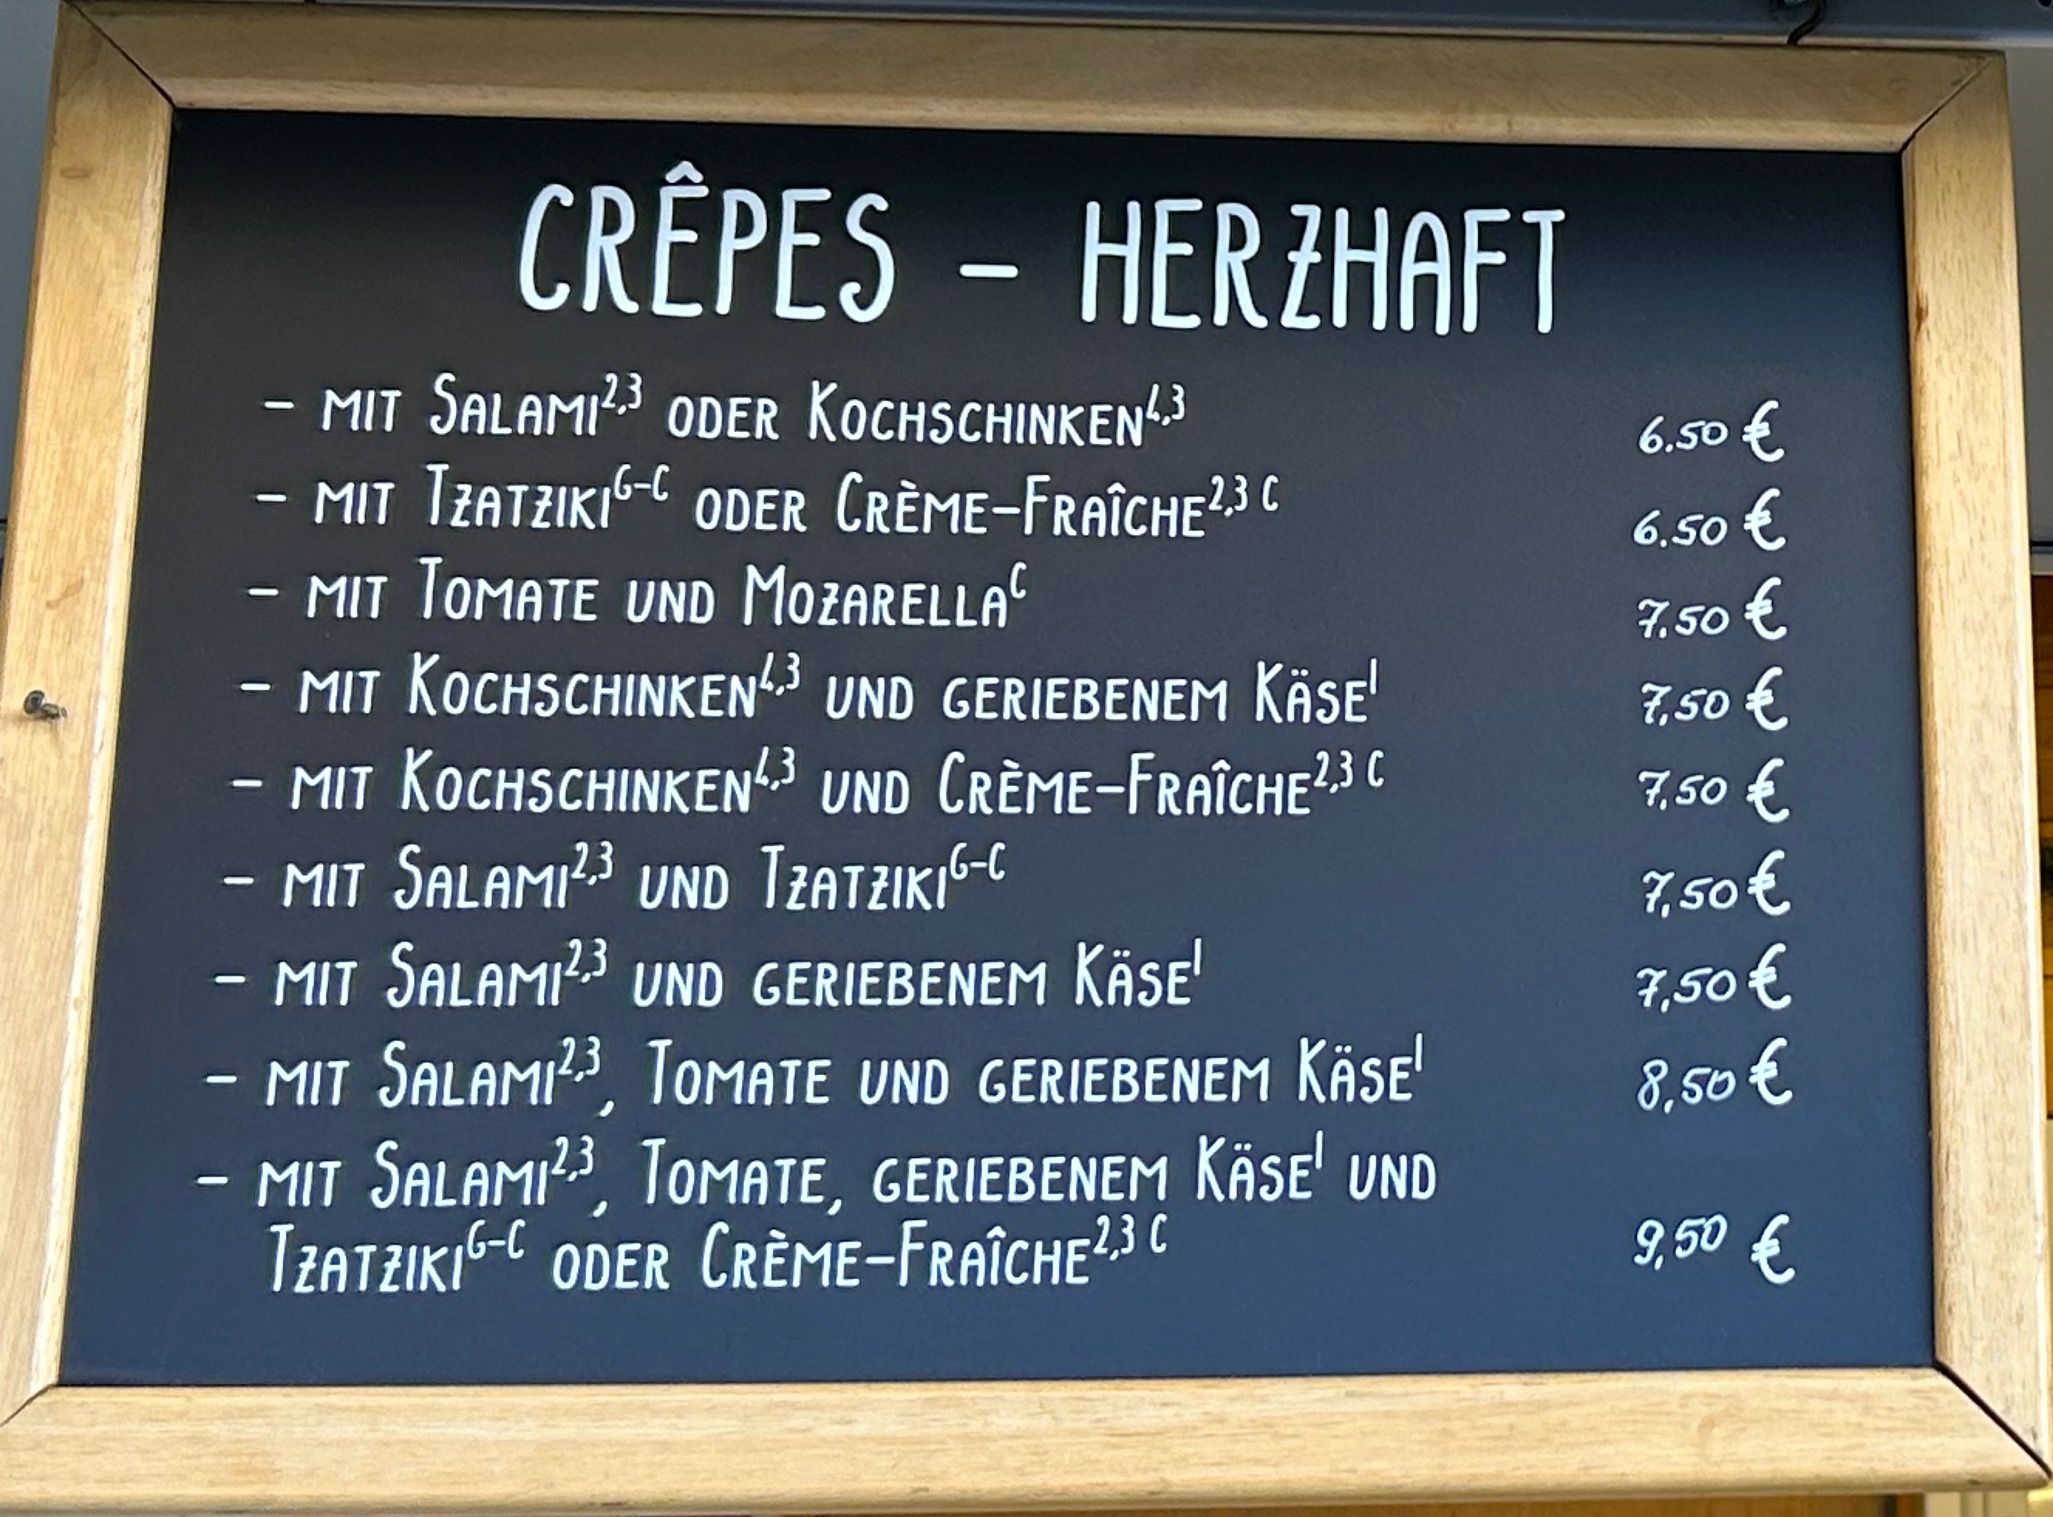 CRÊPES – HERZHAFT
– MIT SALAMI2,3 ODER KOCHSCHINKEN1,3 6.50 €
– MIT TZATZIKIG-C ODER CRÈME-FRAÎCHE2,3 C 6.50 €
– MIT TOMATE UND MOZARELLAC 7.50 €
– MIT KOCHSCHINKEN1,3 UND GERIEBENEM KÄSE1 7,50 €
– MIT KOCHSCHINKEN1,3 UND CRÈME-FRAÎCHE2,3 C 7.50 €
– MIT SALAMI2,3 UND TZATZIKIG-C 7,50 €
– MIT SALAMI2,3 UND GERIEBENEM KÄSE1 7,50 €
– MIT SALAMI2,3, TOMATE UND GERIEBENEM KÄSE1 8,50 €
– MIT SALAMI2,3, TOMATE, GERIEBENEM KÄSE1 UND
TZATZIKIG-C ODER CRÈME-FRAÎCHE2,3 C 9,50 €